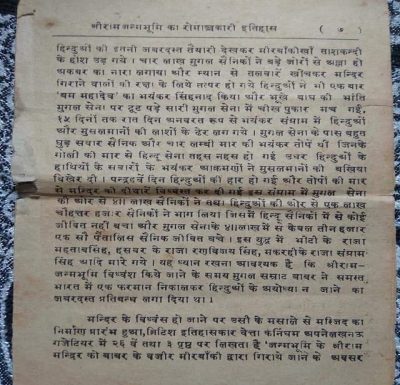 श्रीरामजन्मभूमि का रोमाञ्चकारी इतिहास ( ७ )
हिन्दुओं की इतनी जबरदस्त तैयारी देखकर मीरबाँकीखाँ ताशकन्दी
के होश उड़ गये । चार लाख मुगल सैनिकों ने बड़े जोरों से अल्ला हो
अकबर का नारा लगाया और म्यान से तलवारें खींचकर मन्दिर
गिराने वालों की रक्षा के लिये तत्पर हो गये हिन्दुओं ने भी एक बार
'बम महादेव' का भयंकर सिंहनाद किया और भूखे बाघ की भांति
मुगल सेना पर टूट पड़े सारी मुगल सेना में चीख पुकार मच गई,
१५ दिनों तक रात दिन अनवरत रूप से भयंकर संग्राम में हिन्दुओं
और मुसलमानों की लाशों के ढेर लग गये । मुगल सेना के पास बहुत
घुड़ सवार सैनिक और चार लम्बी मार की भयंकर तोपें थीं जिनके
गोलों की मार से हिन्दू सेना तहस नहस हो गई उधर हिन्दुओं के
हाथियों के सवारों के भयंकर आक्रमणों ने मुसलमानों की बखिया
बिखेर दी । पन्द्रहवें दिन हिन्दुओं की हार हो गई और तोपों की मार
से मन्दिर की दीवारें विध्वस्त कर दी गई इस संग्राम में मुगल सेना
की ओर से ४॥ लाख सैनिकों ने तथा हिन्दुओं की ओर से एक लाख
चौहत्तर हजार सैनिकों ने भाग लिया जिसमें हिन्दू सैनिकों में से कोई
जीवित नहीं बचा और मुगल सेना के ४॥लाख में से केवल तीन हजार
एक सौ पैंतालिस सैनिक जीवित बचे । इस युद्ध में भीटी के राजा
महताबसिंह, हसवर के राजा रणविजय सिंह, मकरही के राजा संग्राम
सिंह आदि मारे गये । यह ध्यान रखना आवश्यक है कि श्रीराम-
जन्मभूमि विध्वंश किये जाने के समय मुगल सम्राट बाबर ने समस्त
भारत में एक फरमान निकालकर हिन्दुओं के अयोध्या न जाने का
जबरदस्त प्रतिबन्ध लगा दिया था ।
मन्दिर के विध्वंस हो जाने पर उसी के मसाले से मस्जिद का
निर्माण प्रारंभ हुआ, ब्रिटिश इतिहासकार वेत्ता कनिंघम अपने लखनऊ
गजेटियर में २६ वें तथा ३ पृष्ठ पर लिखता है 'जन्मभूमि के श्रीराम
मन्दिर को बाबर के वजीर मीरबाँकी द्वारा गिराये जाने के अवसर